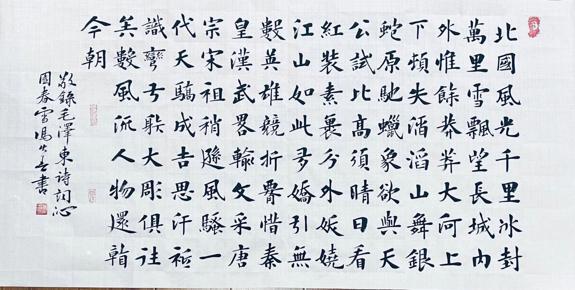 北國風光千里冰封
萬里雪飄望長城內
外惟餘莽莽大河上
下頓失滔滔山舞銀
蛇原馳蠟象欲與天
公試比高須晴日看
紅裝素裹分外妖嬈
江山如此多嬌引無
數英雄競折腰惜秦
皇漢武畧輸文采唐
宗宋祖稍遜風騷一
代天驕成吉思汗祗
識彎弓射大彫俱往
矣數風流人物還看
今朝
敬錄毛澤東詩詞沁
園春雪馮書